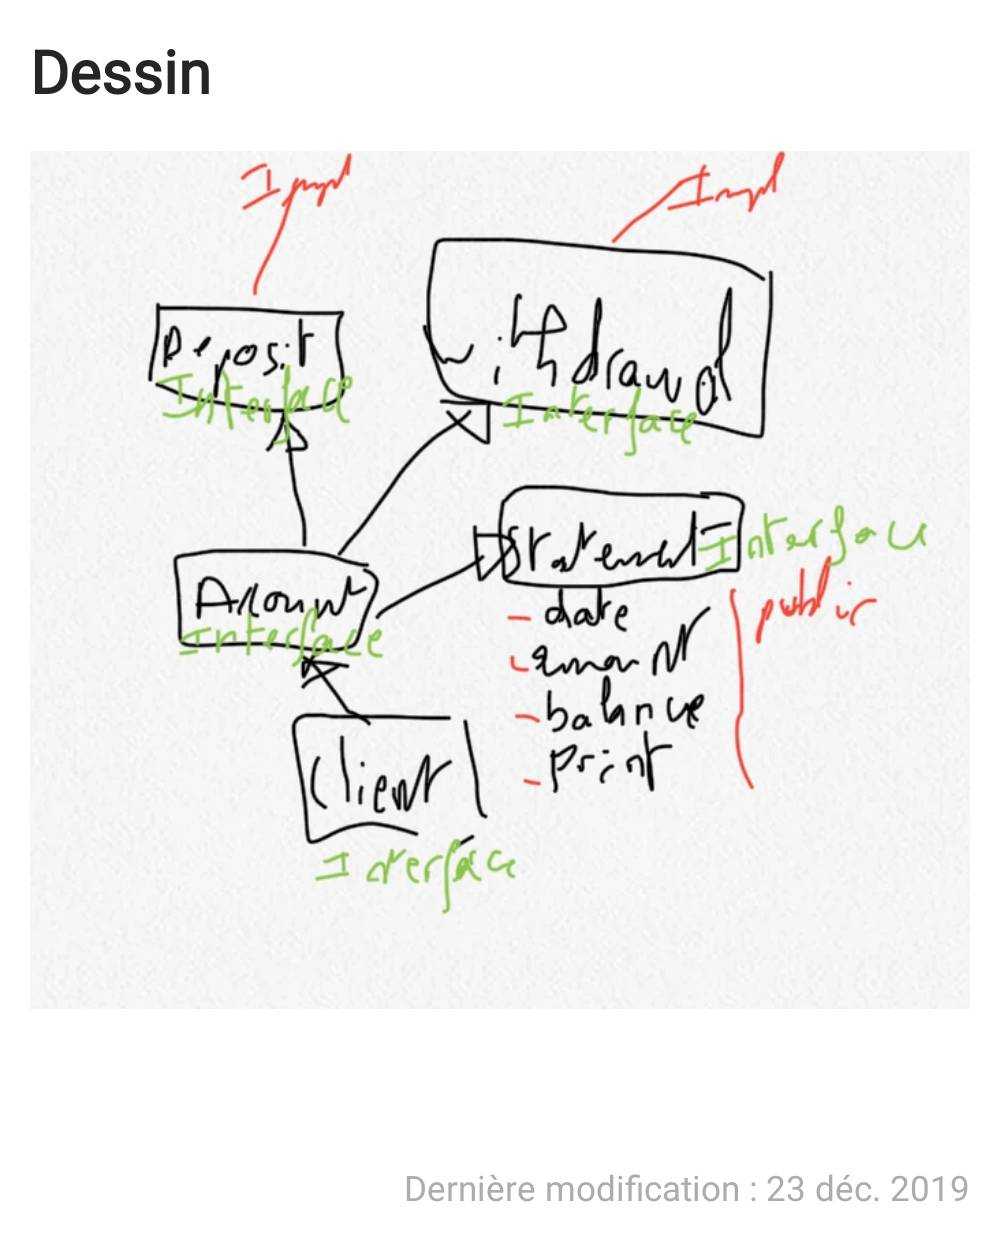 Dessin
Impl
Impl
Deposit
Interface
withdrawal
Interface
Statement
Interface
Account
Interface
public
- date
- amount
- balance
- print
Client
Interface
Dernière modification : 23 déc. 2019